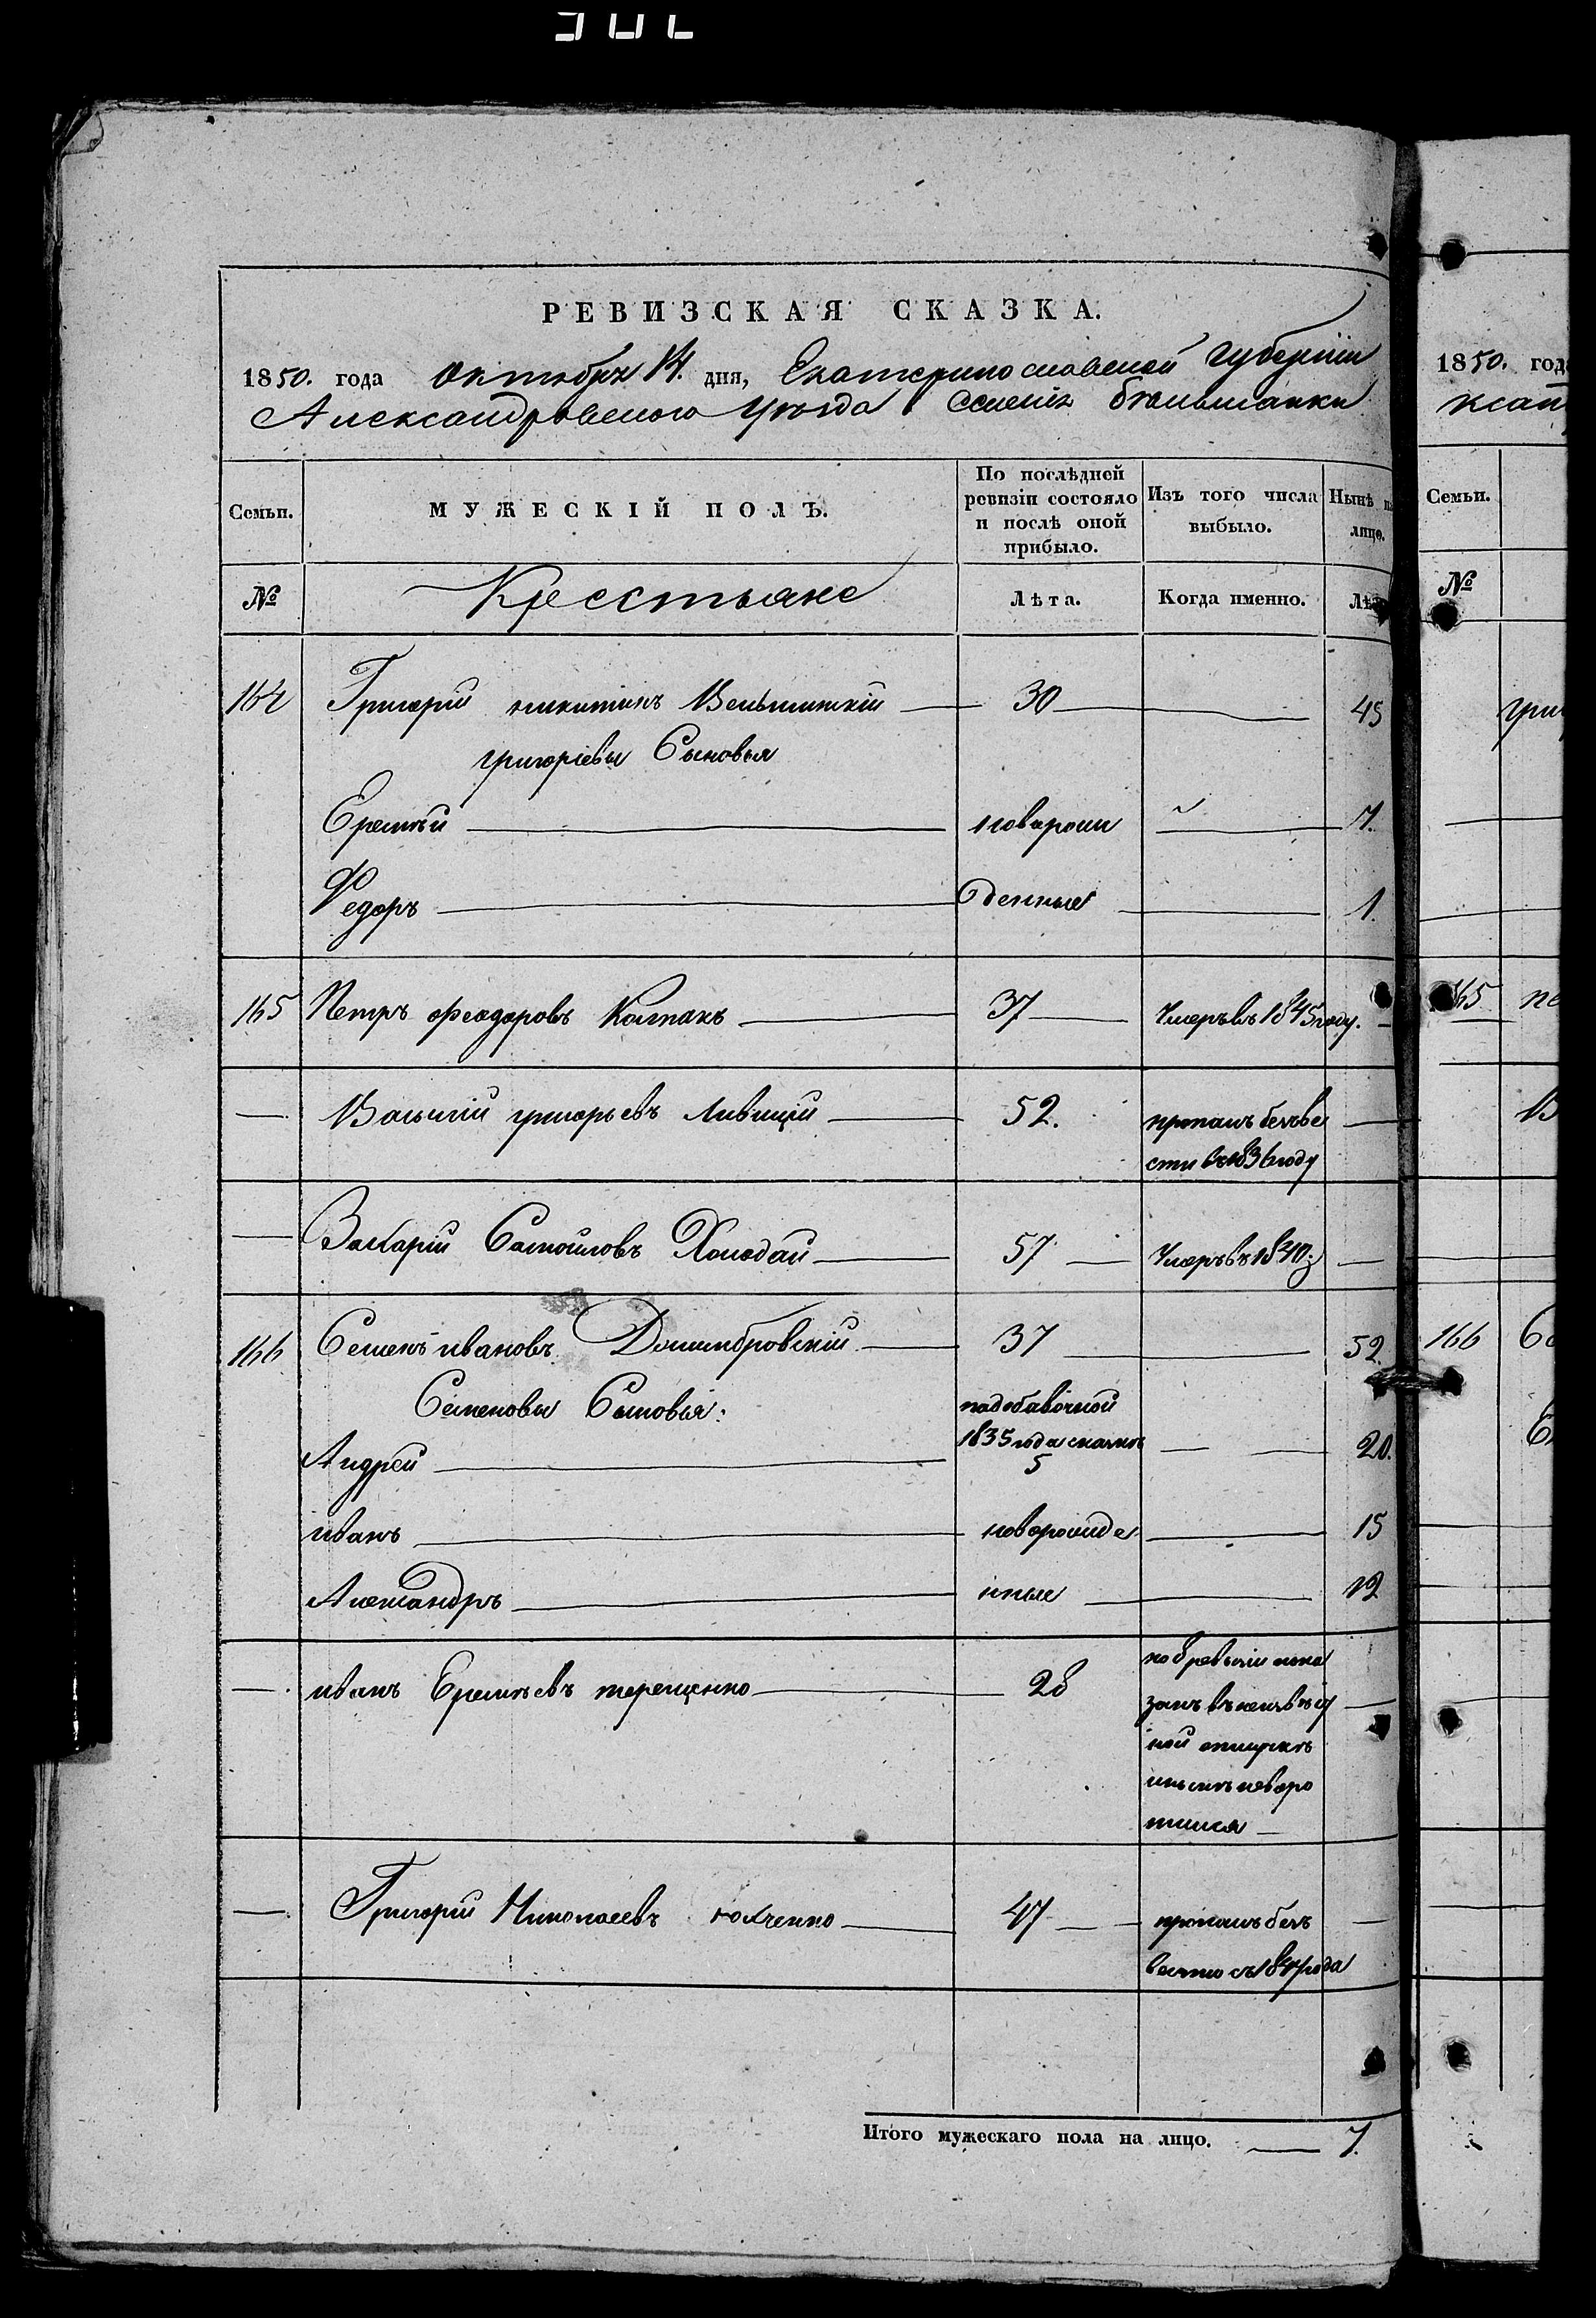 РЕВИЗСКАЯ СКАЗКА.
1850. года октября 14. дня, Екатеринославской губернии
Александровскаго уѣзда селенія Бѣльманки
Семьи. МУЖЕСКІЙ ПОЛЪ. По послѣдней ревизіи состояло и послѣ оной прибыло. Изъ того числа выбыло. Нынѣ на лицо.
№ Крестьяне Лѣта. Когда именно. Лѣта
164 Григорій никитинъ 30 45
григоріевы Сыновья
Еремѣй новорож 7.
Федоръ денные 1.
165 Петръ феодоровъ Колпакъ 37 Умеръ въ 1845 году.
Василій григорьевъ Ливицкій 52. пропалъ безъ ве
сти въ 1836 году
Захарій Самойловъ Холодай 57 Умеръ въ 1840.
166 Семенъ ивановъ Домбровскій 37 52.
Семеновы Сыновья: по добавочной
Андрей 1835 года сказкѣ 5 20.
иванъ новорожде 15
Александръ нные 12
иванъ Еремѣевъ терещенко 28 по 8 ревизіи пока
занъ въ неизвѣст
ной отлучкѣ
и нынѣ неворо
тился
Григорій Николаевъ юхченко 47 пропалъ безъ
вестно съ 1847 года
Итого мужескаго пола на лицо. 7.
1850. год
ксан
Семьи.
№
гри
165 пе
В
166 Се